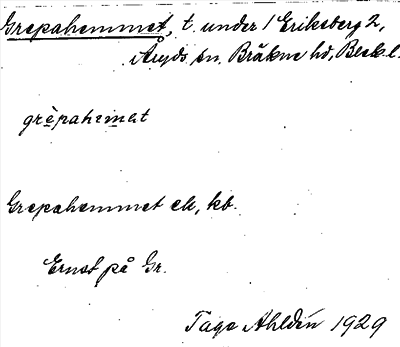 Grepahemmet, t. under 1 Eriksberg 2,
Åryds sn. Bräkne hd, Blek. l.
grèpahemat
Grepahemmet ek, kb.
Ernst på Gr.
Tage Ahldén 1929